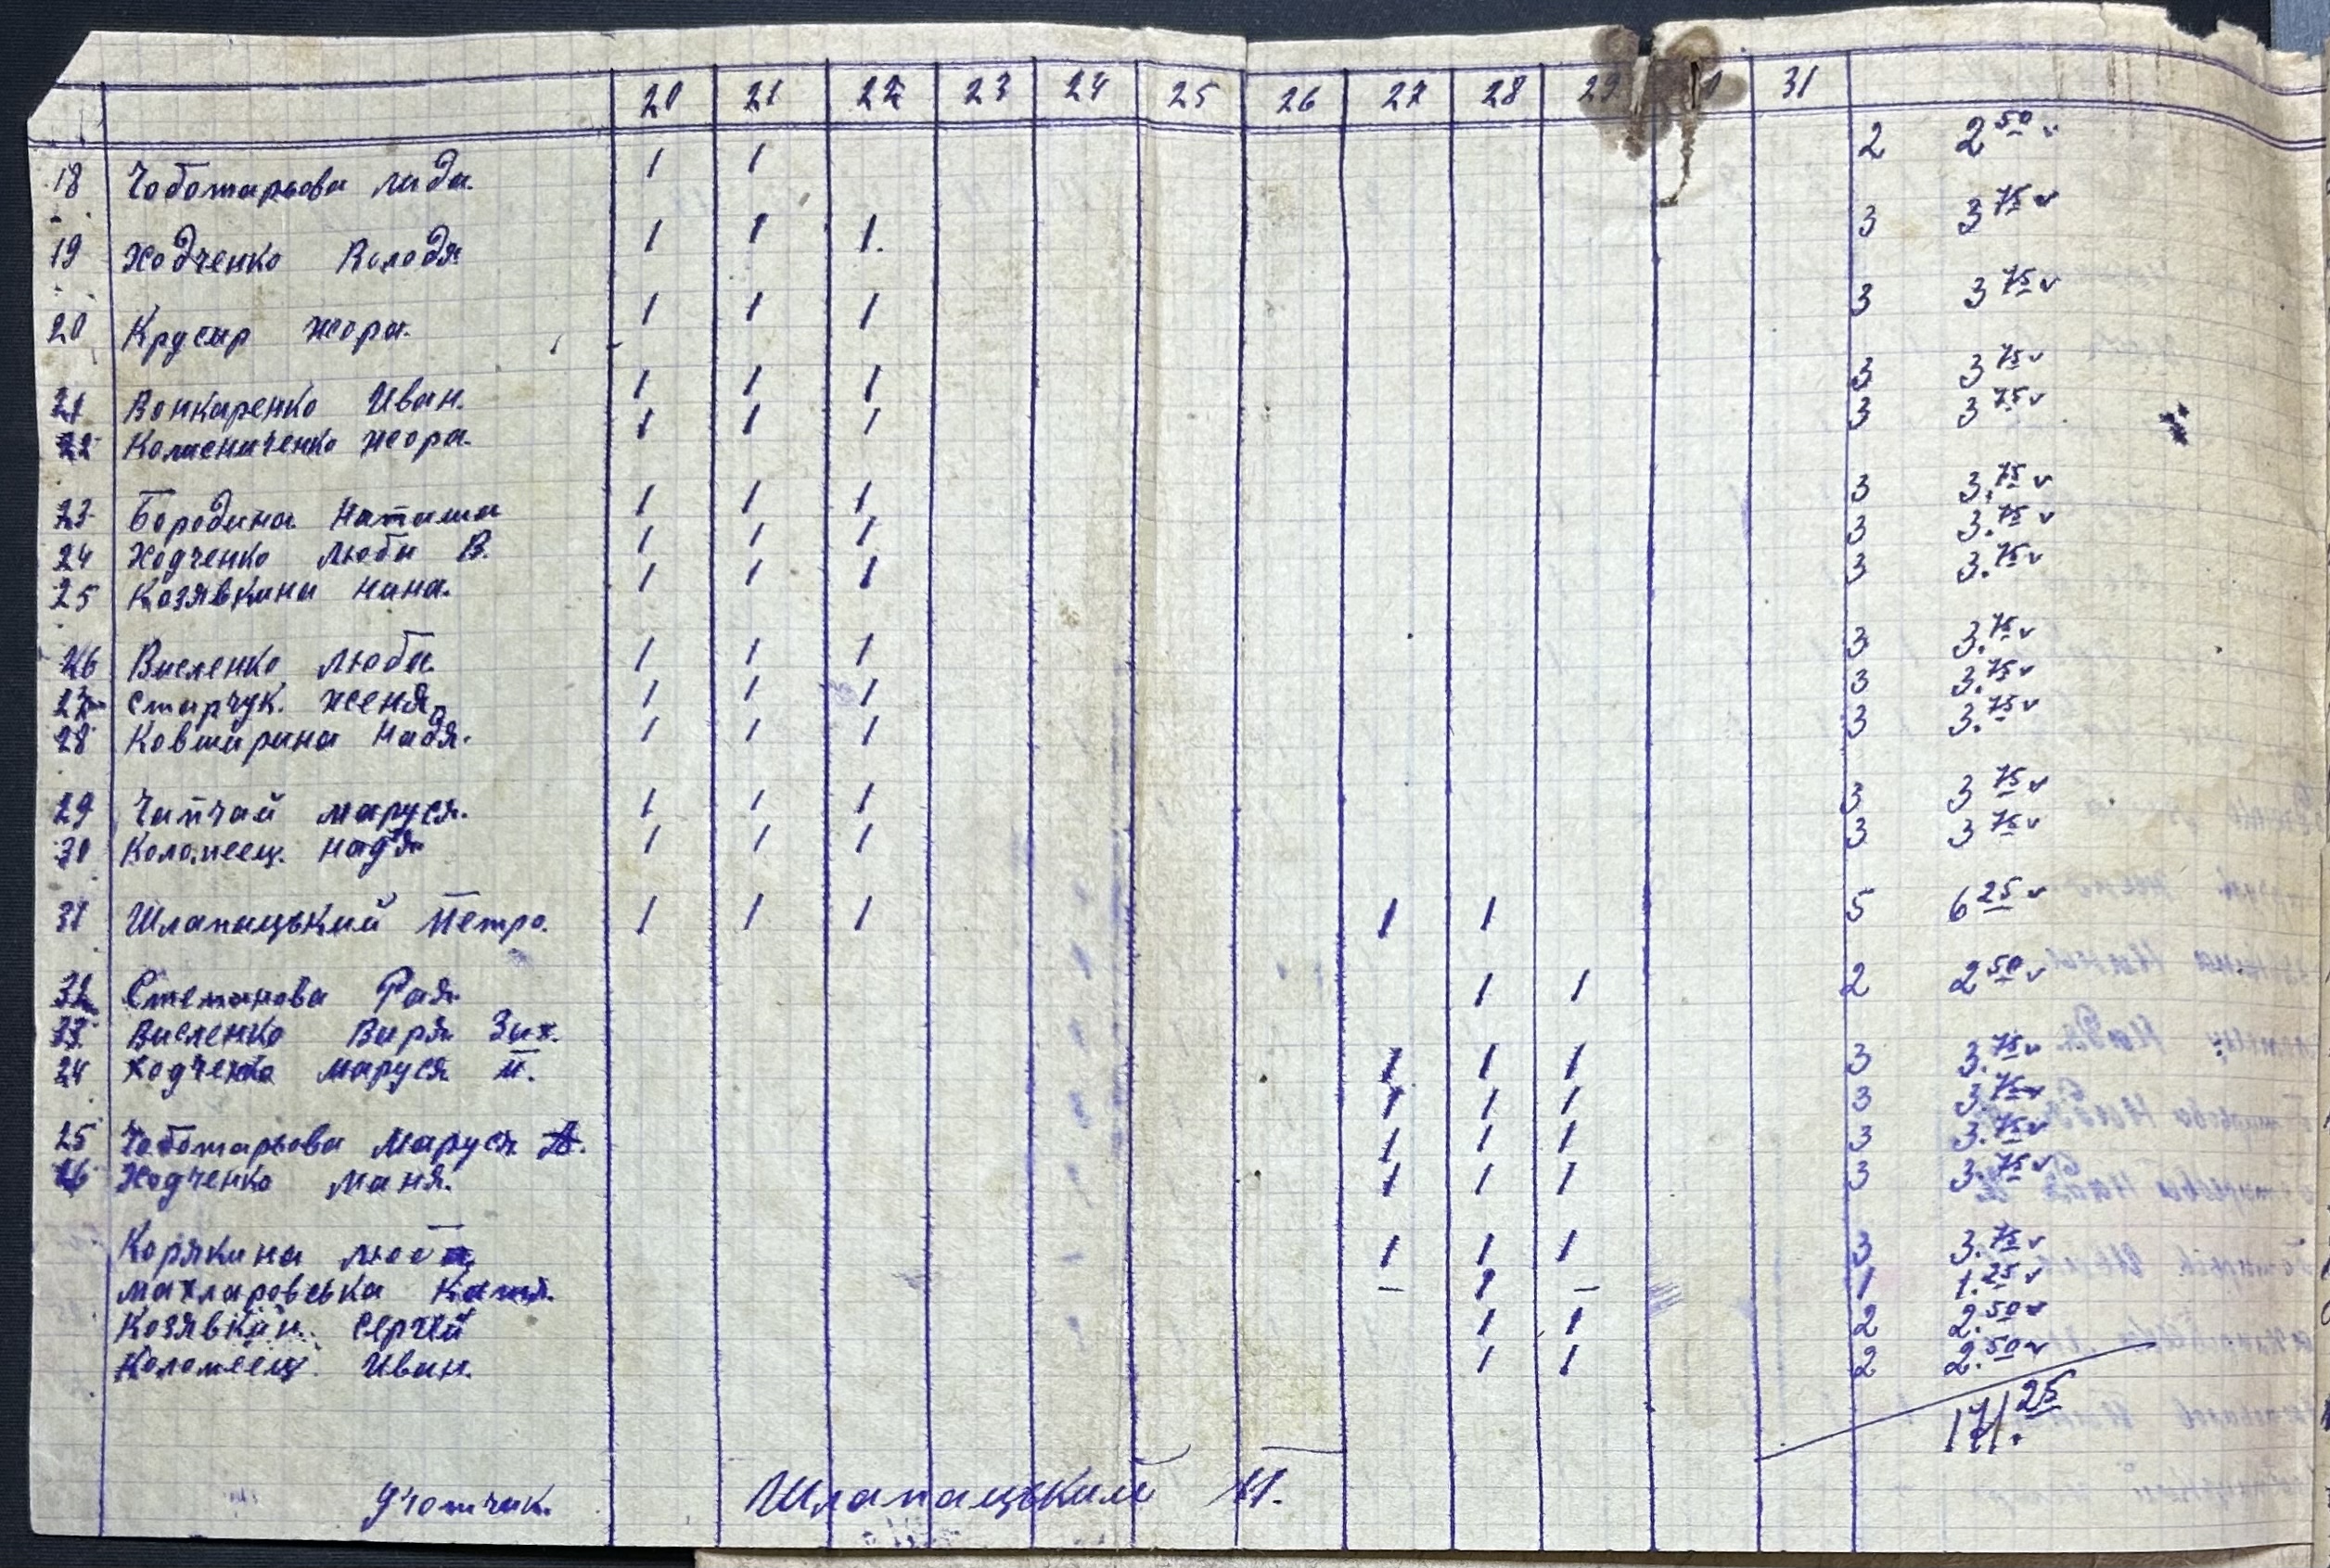 20 21 22 23 24 25 26 27 28 29 31
18 Чоботарьова Лида. 1 1 2 2 50
19 Ходченко Володя 1 1 1. 3 3 75
20 Крусир жора. 1 1 1 3 3 75
21 Вонкаренко Иван. 1 1 1 3 3 75
22 Колисниченко жора. 1 1 1 3 3 75
23 Бородина Наташа 1 1 1 3 3. 75
24 Ходченко Люба В. 1 1 1 3 3. 75
25 Козявкина Нина. 1 1 1 3 3. 75
26 Висленко Люба. 1 1 1 3 3. 75
27 Старчук. женя 1 1 1 3 3. 75
28 Ковширина Надя. 1 1 1 3 3. 75
29 Чапчай маруся. 1 1 1 3 3 75
30 Коломеец. надя 1 1 1 3 3 75
31 Шлапацький Петро. 1 1 1 1 1 5 6 25
32 Степанова Рая. 1 1 2 2 50
33 Висленко Варя Зах. 1 1 1 3 3. 75
24 Ходченко маруся П. 1 1 1 3 3. 75
25 Чоботарьова Маруся А. 1 1 1 3 3. 75
26 Ходченко маня. 1 1 1 3 3. 75
Корякина люба 1 1 1 3 3. 75
махларовська Катя. – 1 – 1 1. 25
Козявкин. Сергей 1 1 2 2. 50
Коломеец. Иван. 1 1 2 2. 50
171. 25
Учотчик. Шлапацький П.